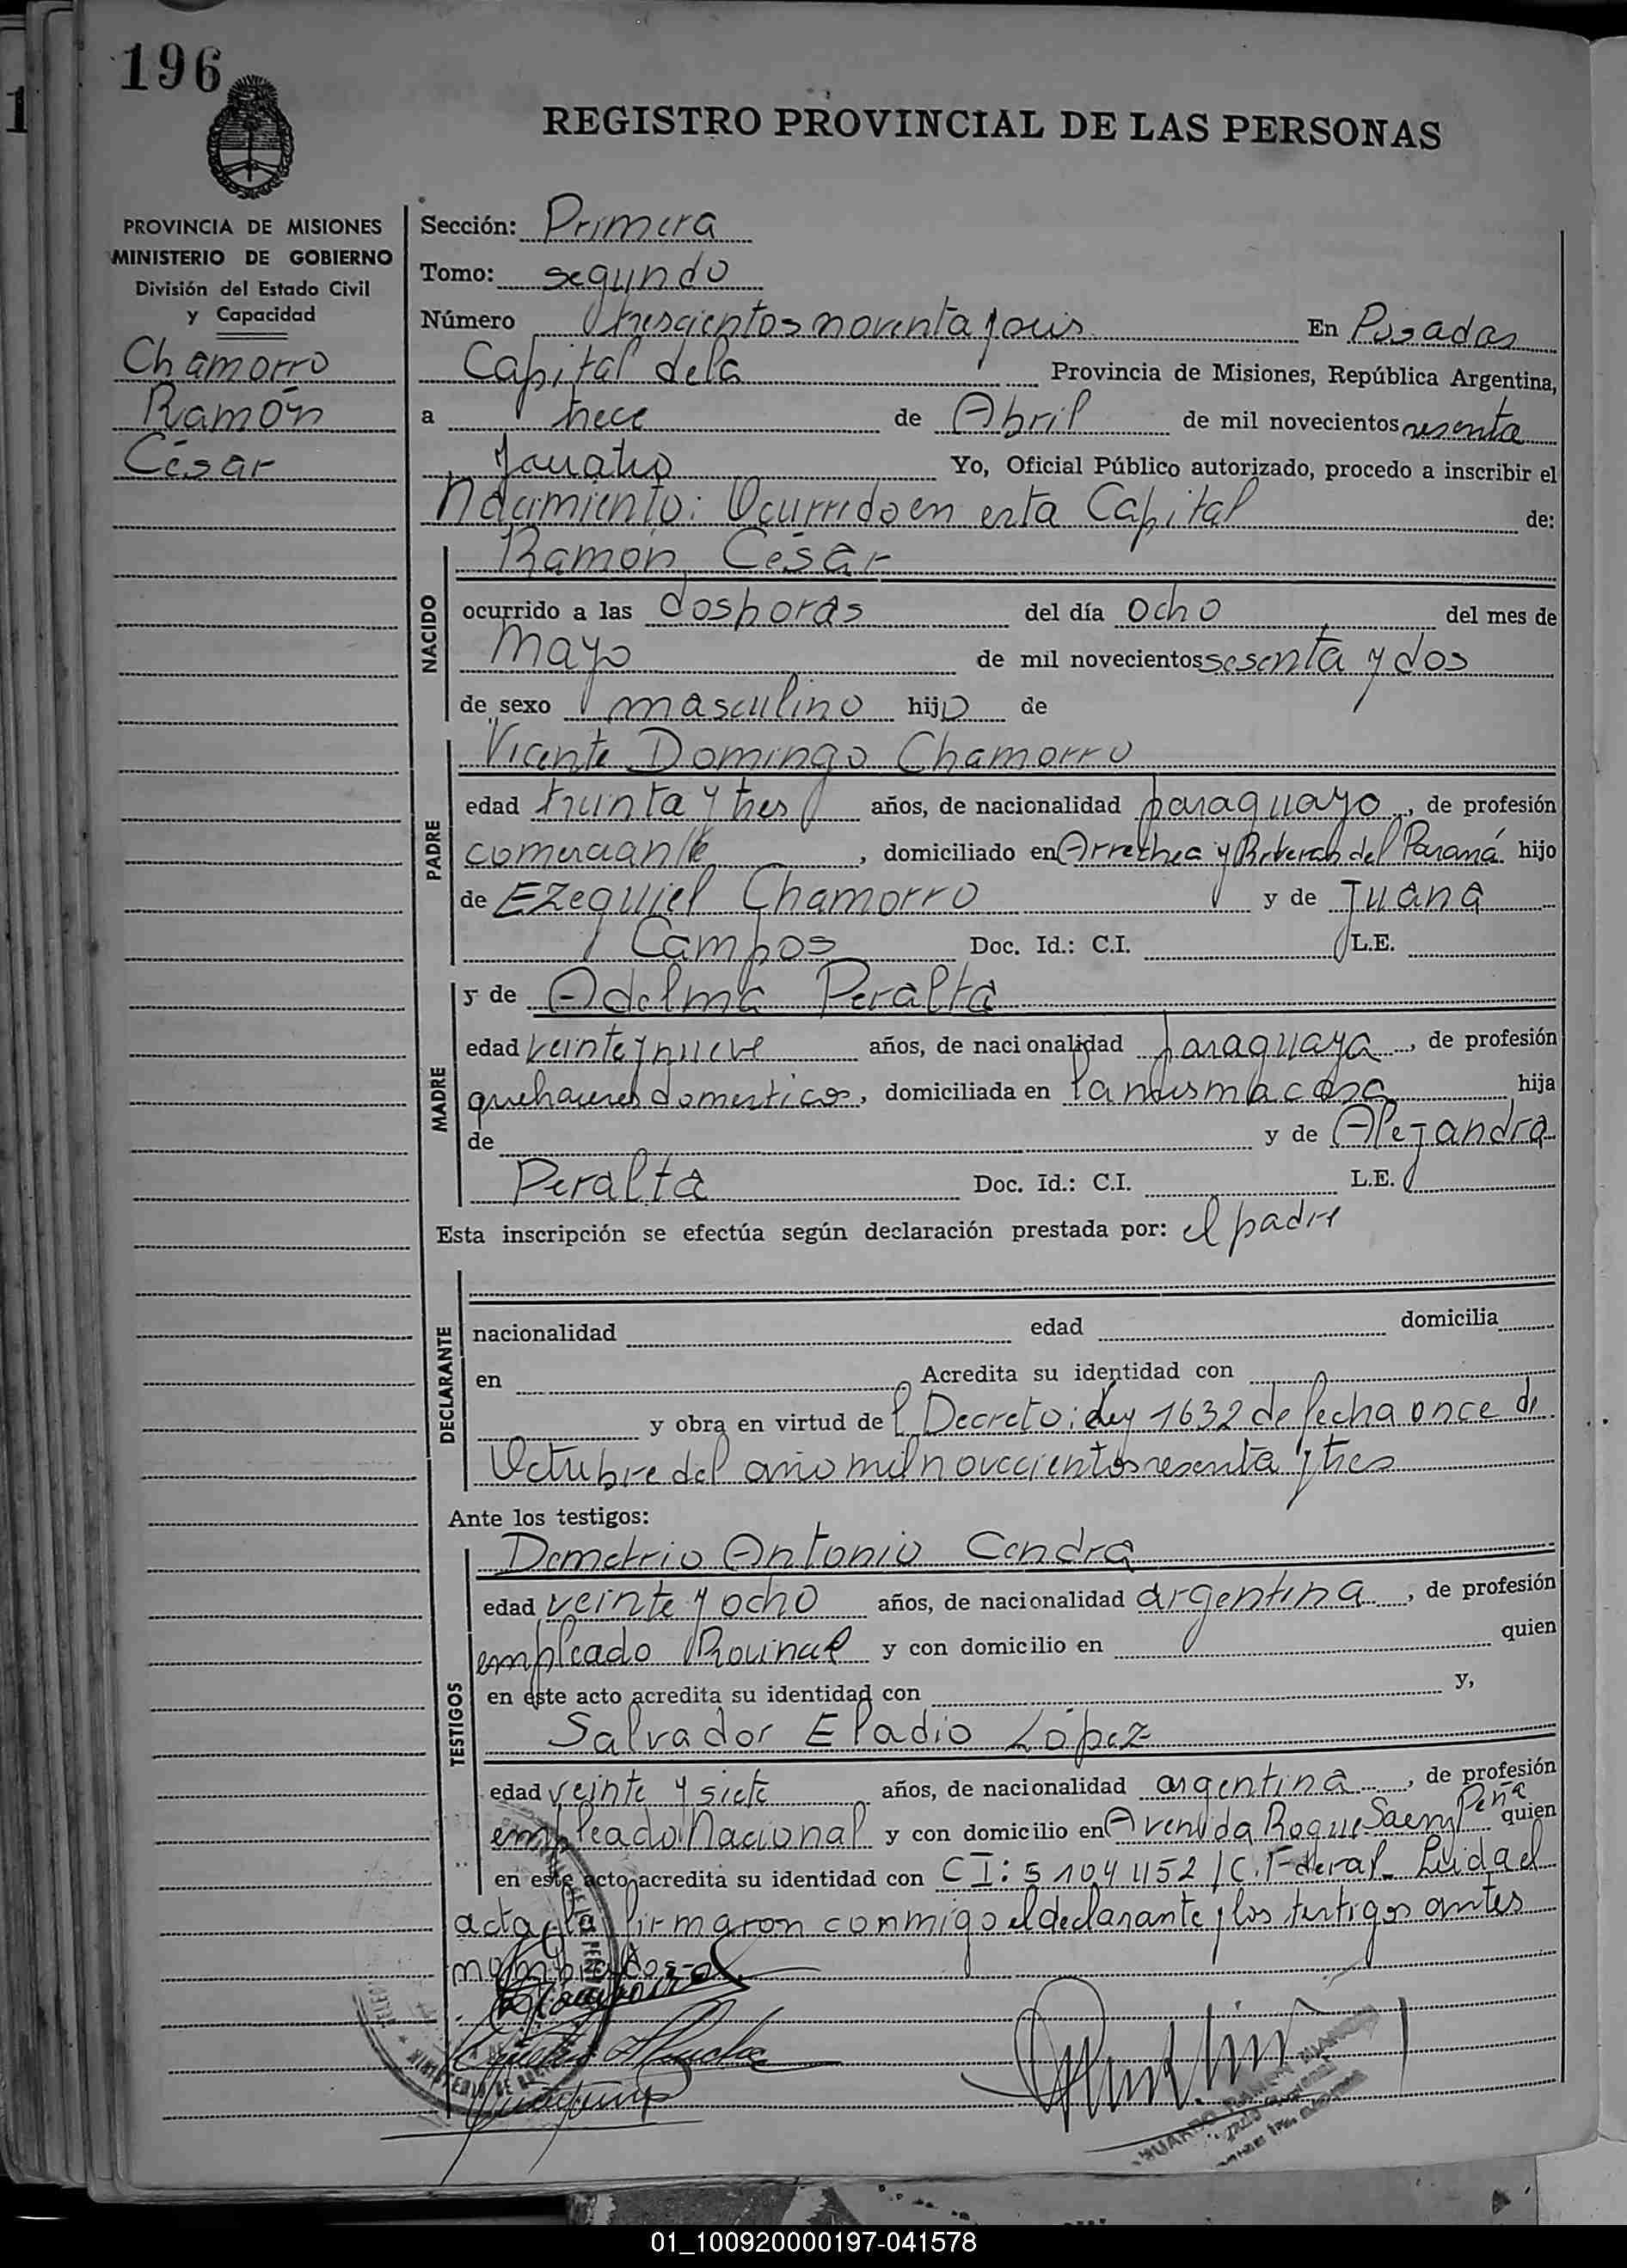 196
REGISTRO PROVINCIAL DE LAS PERSONAS
PROVINCIA DE MISIONES
MINISTERIO DE GOBIERNO
División del Estado Civil
y Capacidad
Chamorro
Ramón
César
Sección: Primera
Tomo: segundo
Número trescientos noventa y seis En Posadas
Capital de la Provincia de Misiones, República Argentina,
a trece de Abril de mil novecientos sesenta
y cuatro Yo, Oficial Público autorizado, procedo a inscribir el
Nacimiento: Ocurrido en esta Capital de:
NACIDO
Ramón César
ocurrido a las dos horas del día ocho del mes de
mayo de mil novecientos sesenta y dos
de sexo masculino hijo de
PADRE
Vicente Domingo Chamorro
edad treinta y tres años, de nacionalidad paraguayo, de profesión
comerciante, domiciliado en Arrechea y Riberas del Paraná hijo
de Ezequiel Chamorro y de Juana
Campos Doc. Id.: C.I. L.E.
MADRE
y de Adelma Peralta
edad veinte y nueve años, de nacionalidad paraguaya, de profesión
quehaceres domesticos, domiciliada en la misma casa hija
de y de Alejandra
Peralta Doc. Id.: C.I. L.E.
Esta inscripción se efectúa según declaración prestada por: el padre
DECLARANTE
nacionalidad edad domicilia
en Acredita su identidad con
y obra en virtud del Decreto: Ley 1632 de fecha once de
Octubre del año mil novecientos sesenta y tres
Ante los testigos:
TESTIGOS
Demetrio Antonio Cendra
edad veinte y ocho años, de nacionalidad argentina, de profesión
empleado Provincial y con domicilio en quien
en este acto acredita su identidad con y,
Salvador Eladio López
edad veinte y siete años, de nacionalidad argentina, de profesión
empleado Nacional y con domicilio en Avenida Roque Saenz Peña quien
en este acto acredita su identidad con CI: 5104152/C. Federal. Leida el
acta, la firmaron conmigo el declarante y los testigos antes
nombrados
01_100920000197-041578